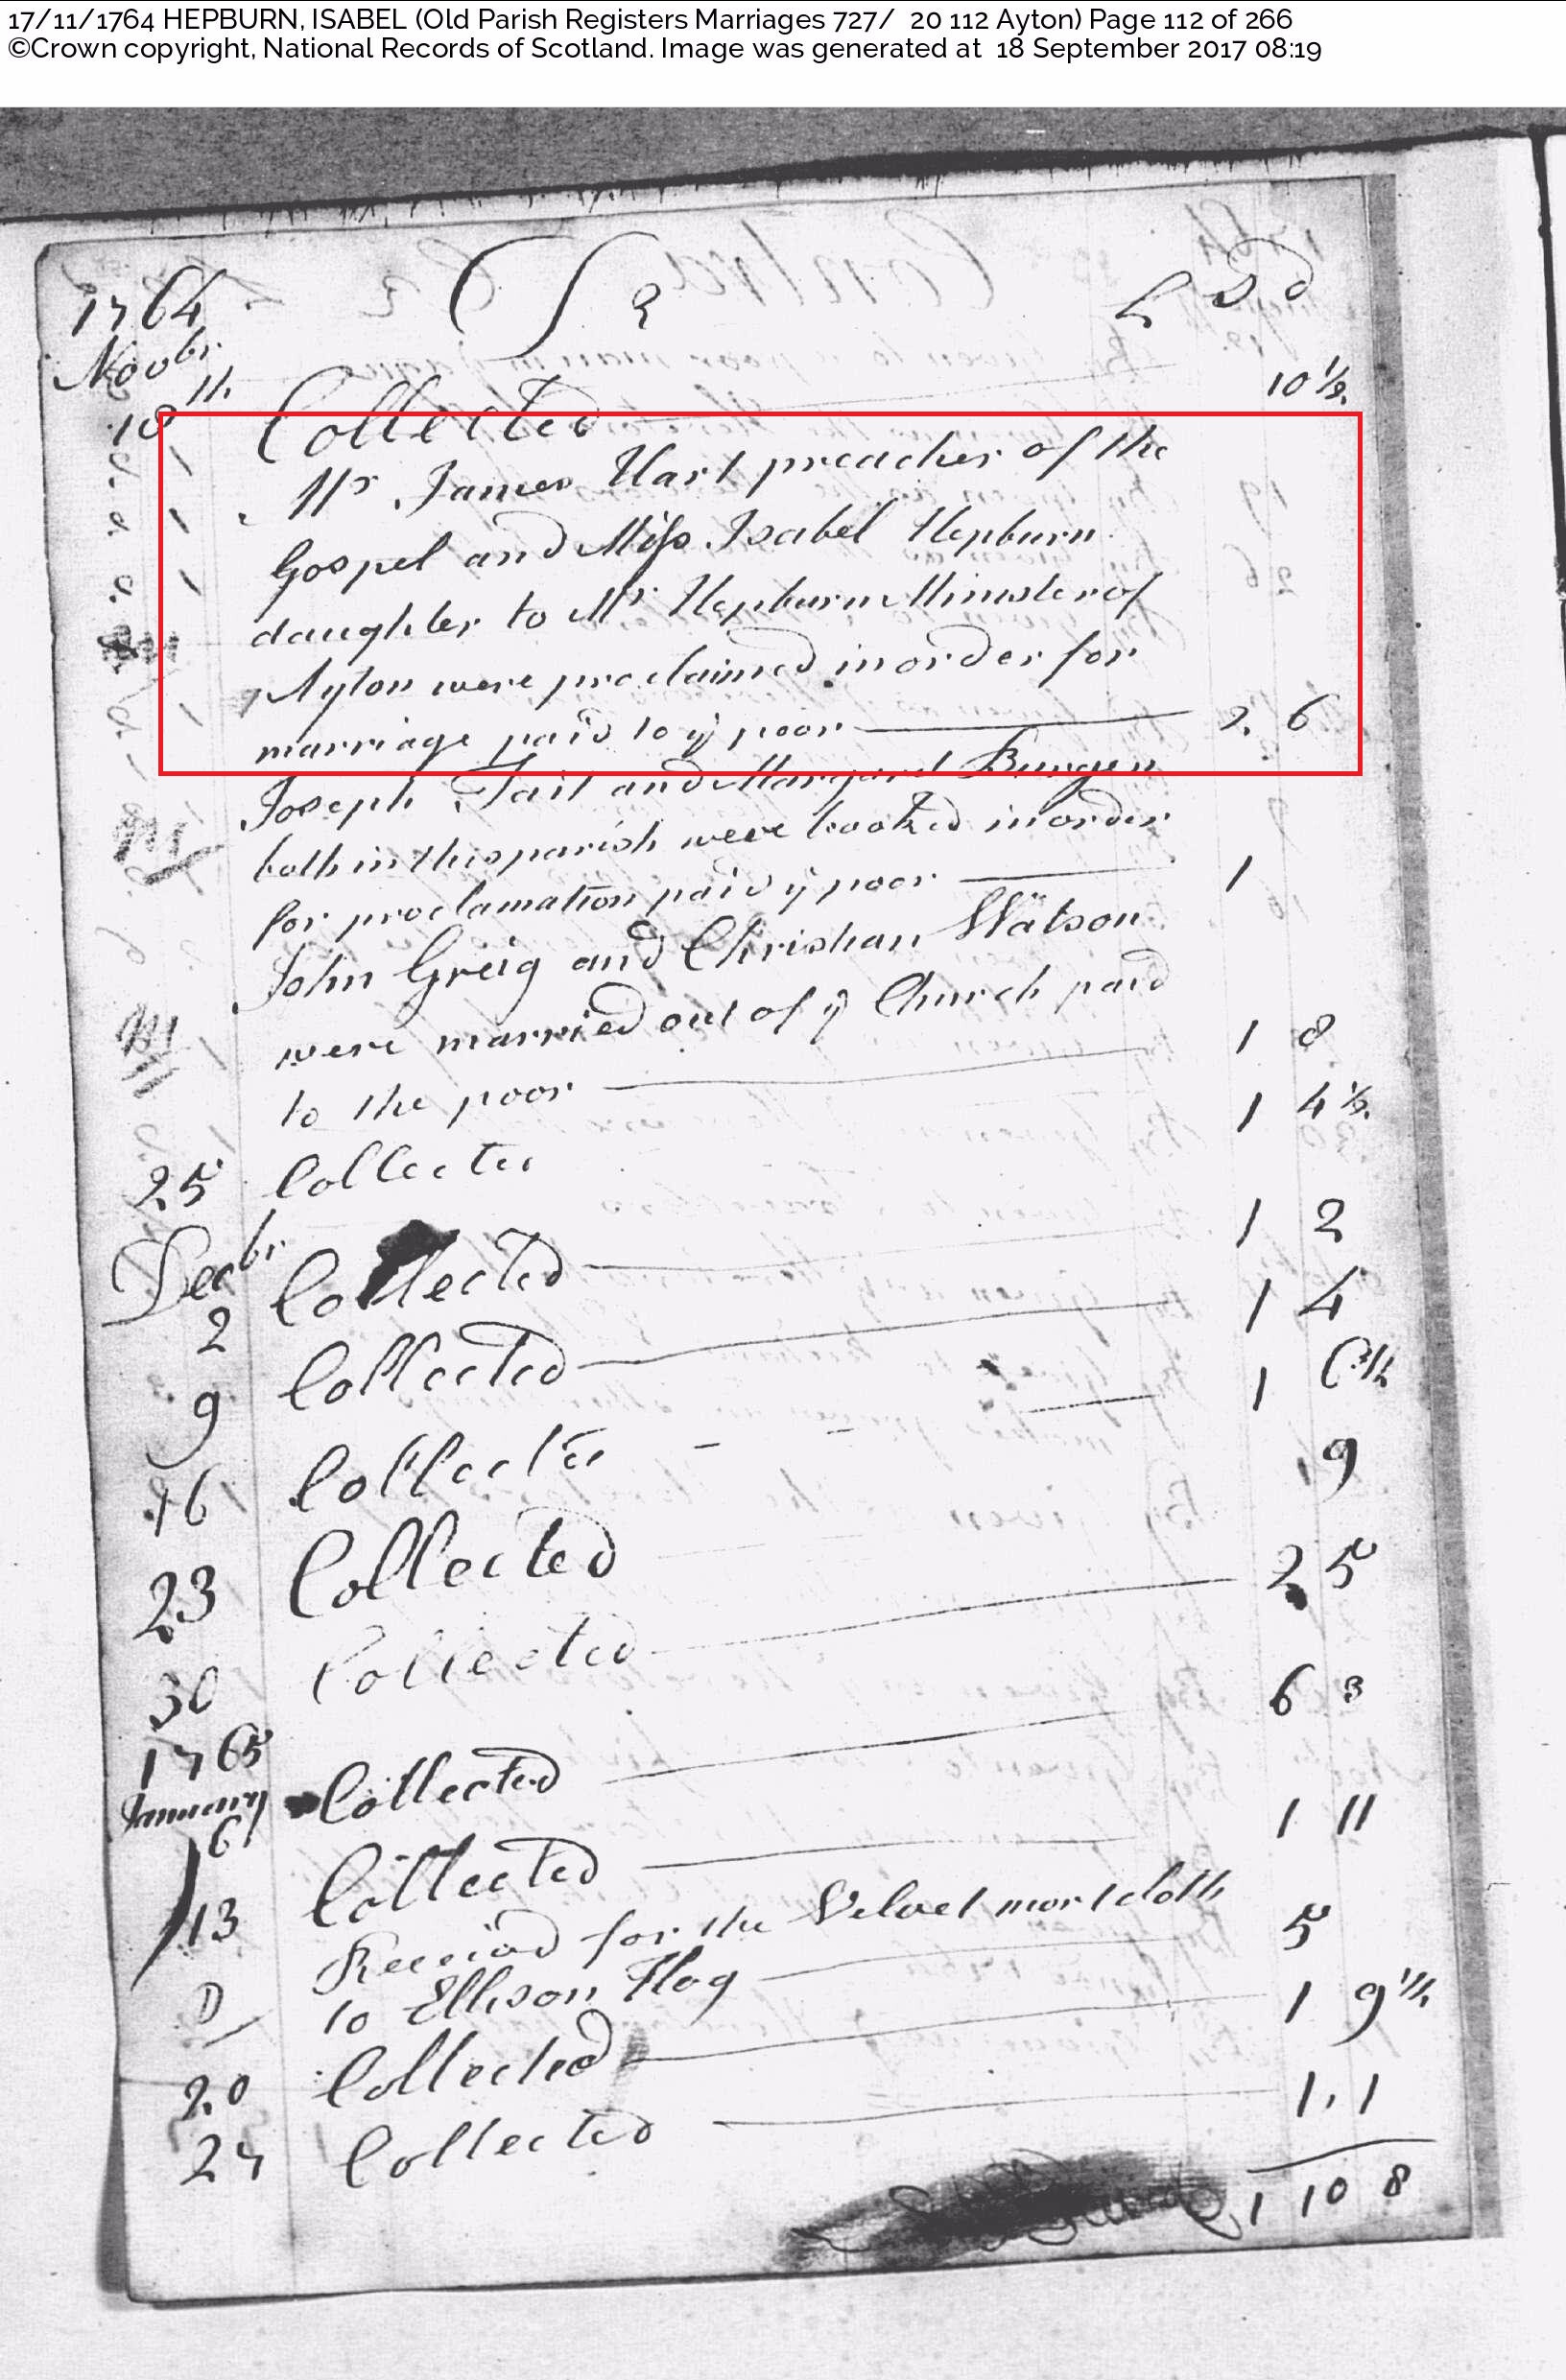 17/11/1764 HEPBURN, ISABEL (Old Parish Registers Marriages 727/ 20 112 Ayton) Page 112 of 266
©Crown copyright, National Records of Scotland. Image was generated at 18 September 2017 08:19
1764 L S d
Novbr
11 Collected 10 1/2
18
Mr James Hart preacher of the
Gospel and Miss Isabel Hepburn
daughter to Mr Hepburn Minister of
Ayton were proclaimed in order for
marriage paid to ye poor 2 6
Joseph Tait and Margaret Burgen
both in this parish were booked in order
for proclamation paid ye poor 1
John Greig and Christian Watson
were married out of ye Church paid
to the poor 1 8
25 Collected 1 4 1/2
Decbr
2 Collected 1 2
9 Collected 1 4
16 Collected 1
23 Collected 9
30 Collected 2 5
1765
January
6 Collected 6 3
13 Collected 1 11
D Received for the Velvet mortcloth
to Ellison Hog 5
20 Collected 1 9 1/2
27 Collected 1 1
1 10 8